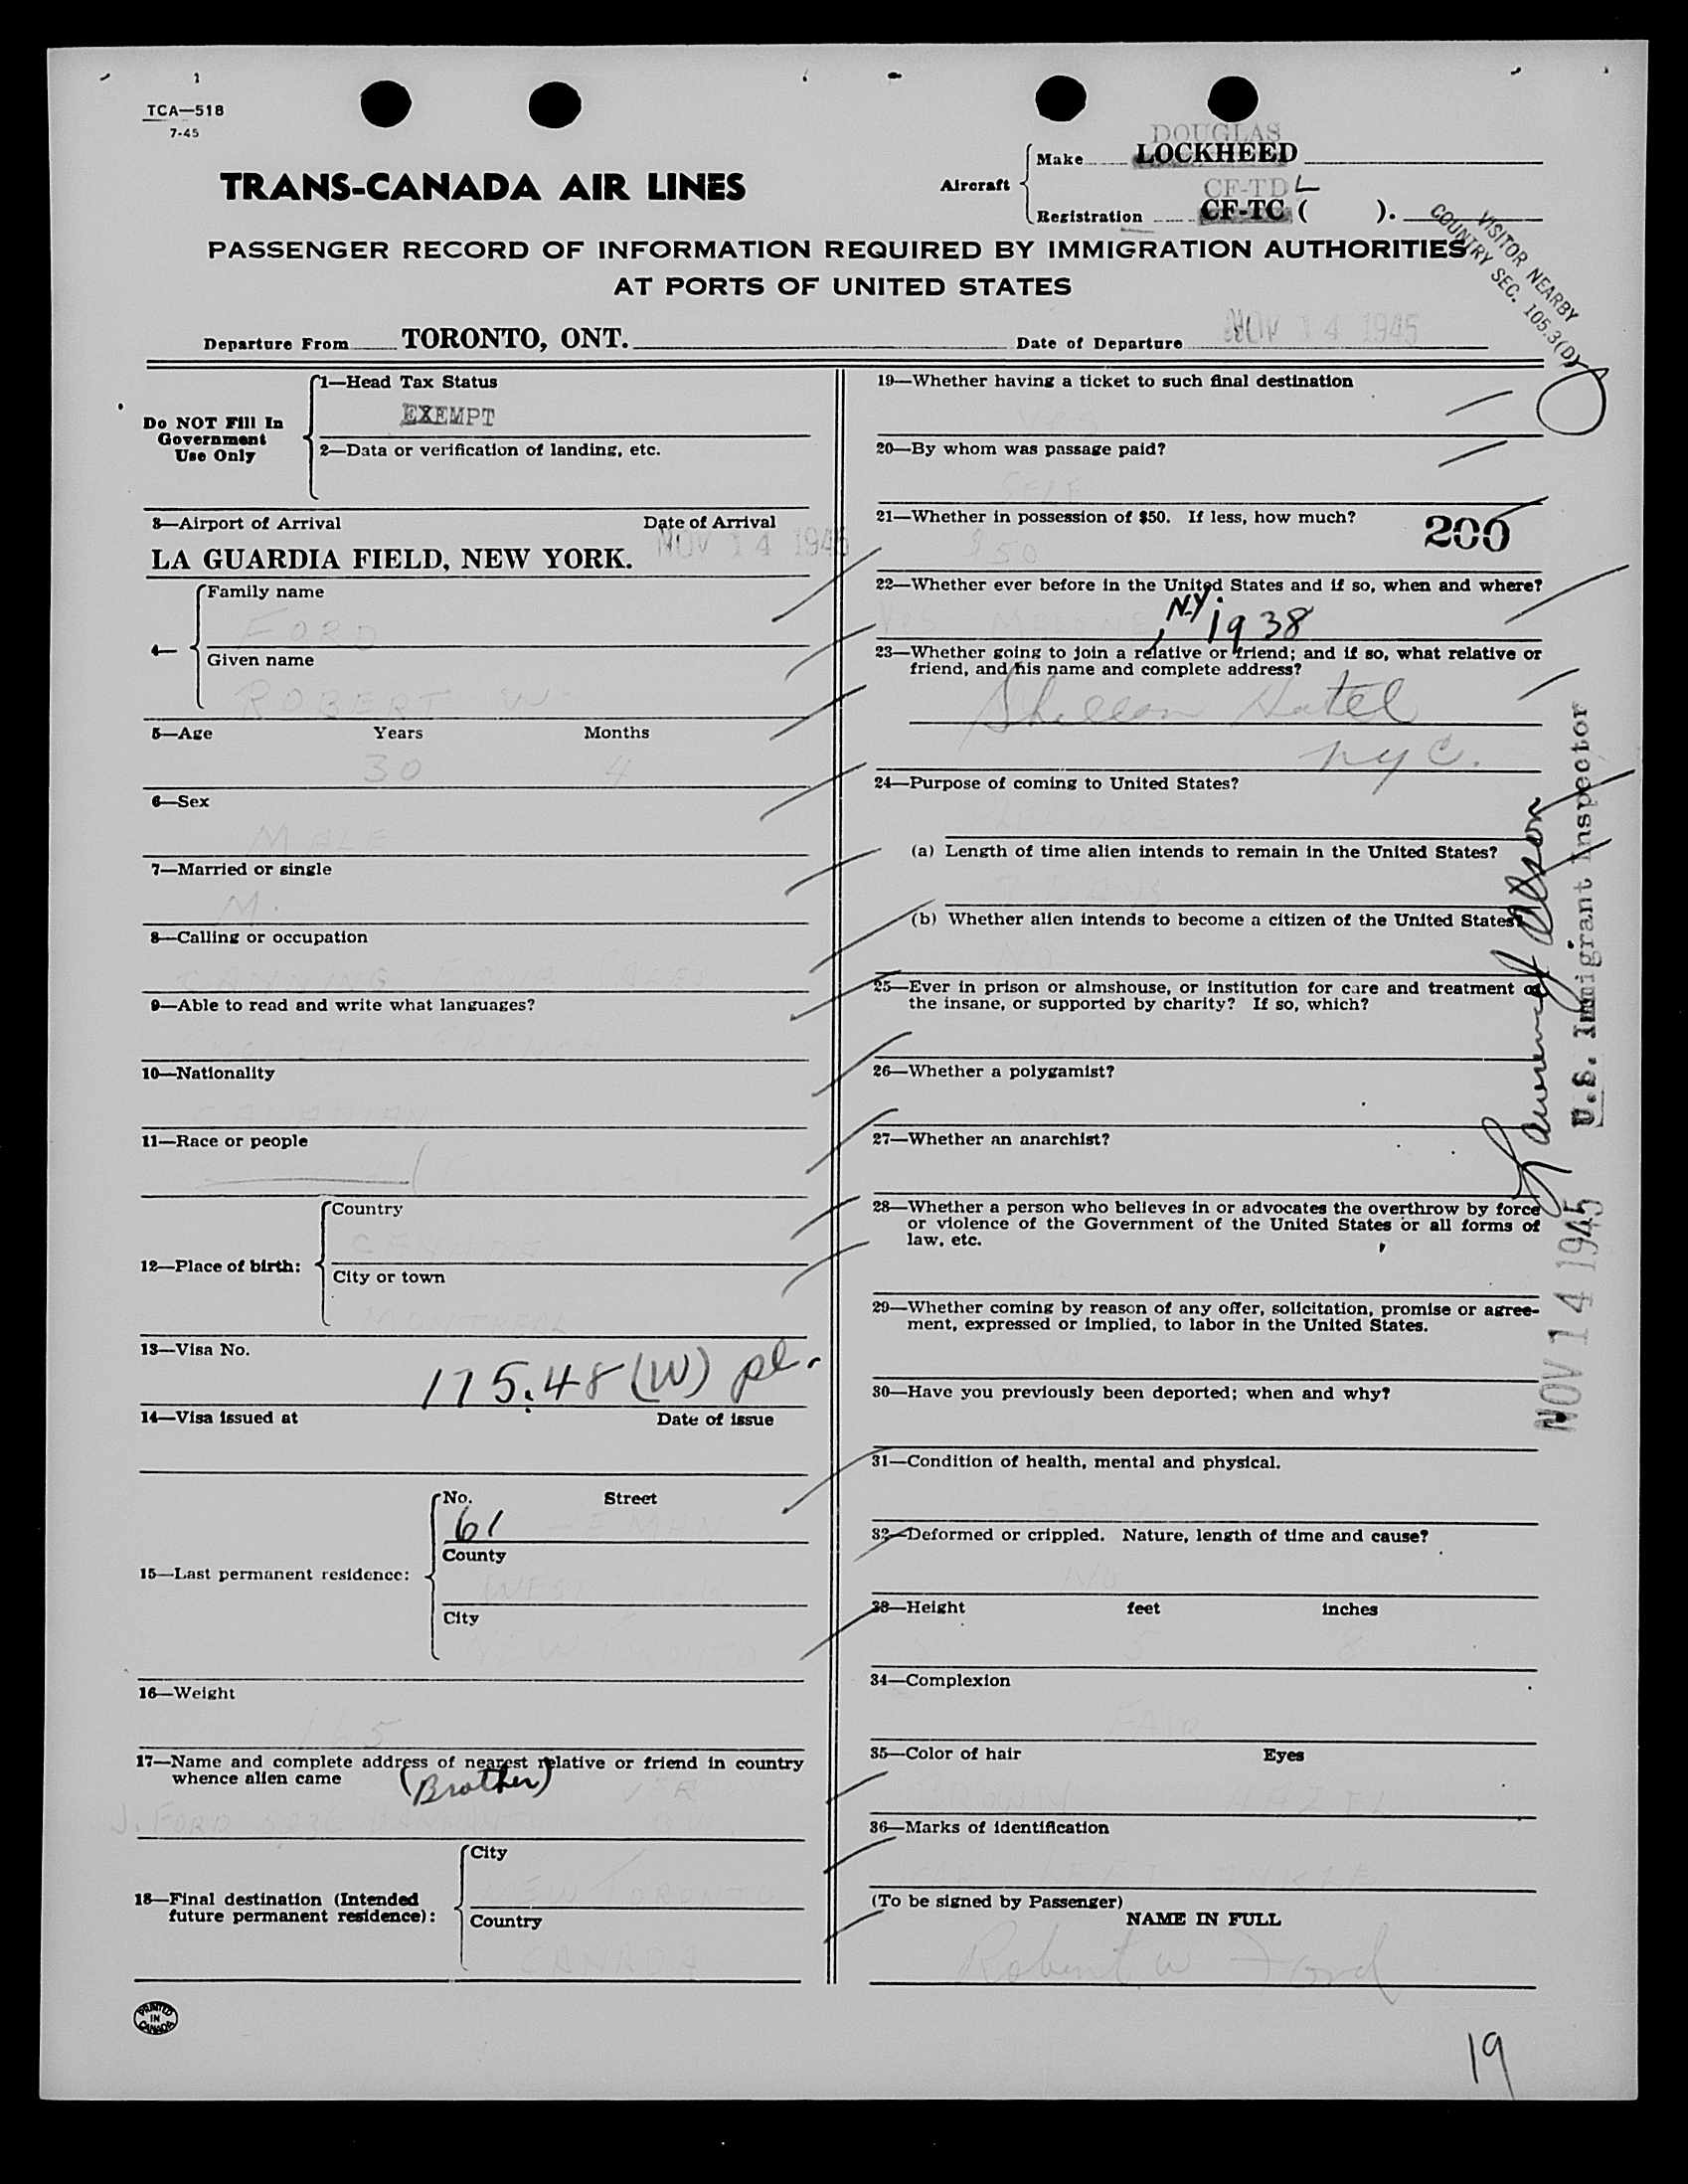 TCA—518
7-45
TRANS-CANADA AIR LINES
Aircraft
Make
DOUGLAS
LOCKHEED
CF-TD L
Registration CF-TC ( ).
VISITOR NEARBY
COUNTRY SEC. 105.3(D)
PASSENGER RECORD OF INFORMATION REQUIRED BY IMMIGRATION AUTHORITIES
AT PORTS OF UNITED STATES
Departure From TORONTO, ONT.
Date of Departure NOV 14 1945
Do NOT Fill In
Government
Use Only
1—Head Tax Status
EXEMPT
2—Data or verification of landing, etc.
3—Airport of Arrival Date of Arrival
LA GUARDIA FIELD, NEW YORK. NOV 14 1945
4—
Family name
FORD
Given name
ROBERT W
5—Age Years Months
30 4
6—Sex
MALE
7—Married or single
M.
8—Calling or occupation
9—Able to read and write what languages?
10—Nationality
CANADIAN
11—Race or people
12—Place of birth:
Country
City or town
MONTREAL
13—Visa No.
175.48 (W) pl.
14—Visa issued at Date of issue
15—Last permanent residence:
No. Street
61
County
City
NEW TORONTO
16—Weight
165
17—Name and complete address of nearest relative or friend in country
whence alien came
(Brother)
J. FORD
18—Final destination (Intended
future permanent residence):
City
NEW TORONTO
Country
CANADA
PRINTED
IN
CANADA
19—Whether having a ticket to such final destination
YES
20—By whom was passage paid?
SELF
21—Whether in possession of $50. If less, how much?
$50
200
22—Whether ever before in the United States and if so, when and where?
Yes MALONE, N.Y. 1938
23—Whether going to join a relative or friend; and if so, what relative or
friend, and his name and complete address?
Hotel
nyc.
24—Purpose of coming to United States?
(a) Length of time alien intends to remain in the United States?
(b) Whether alien intends to become a citizen of the United States?
NO
25—Ever in prison or almshouse, or institution for care and treatment of
the insane, or supported by charity? If so, which?
26—Whether a polygamist?
27—Whether an anarchist?
28—Whether a person who believes in or advocates the overthrow by force
or violence of the Government of the United States or all forms of
law, etc.
29—Whether coming by reason of any offer, solicitation, promise or agree-
ment, expressed or implied, to labor in the United States.
30—Have you previously been deported; when and why?
31—Condition of health, mental and physical.
32—Deformed or crippled. Nature, length of time and cause?
NO
33—Height feet inches
5 8
34—Complexion
FAIR
35—Color of hair Eyes
BROWN HAZEL
36—Marks of identification
(To be signed by Passenger)
NAME IN FULL
Robert W Ford
U.S. Immigrant Inspector
NOV 14 1945
19